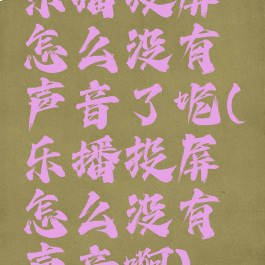 乐播投屏
怎么没有
声音了呢(
乐播投屏
怎么没有
声音啊)